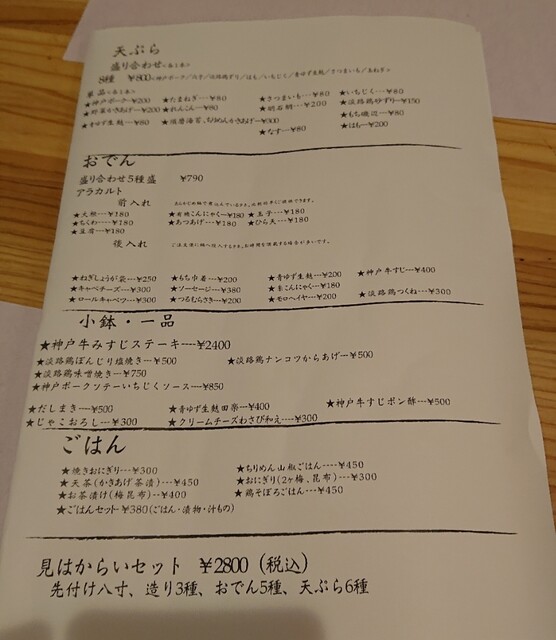 天ぷら
盛り合わせ
8種 ¥800 神戸ポーク/穴子/淡路鶏ずり/はも/いちじく/青ゆず生麩/さつまいも/玉ねぎ
単品
★神戸ポーク…¥200 ★たまねぎ…¥80 ★さつまいも…¥80 ★いちじく…¥80
★野菜かきあげ…¥200 ★れんこん…¥80 ★明石蛸…¥200 ★淡路鶏ずり…¥150
★青ゆず生麩…¥80 ★須磨海苔、ちりめんかきあげ…¥300 ★もち磯辺…¥80
★なす…¥80 ★はも…¥200
おでん
盛り合わせ5種盛 ¥790
アラカルト
前入れ
★大根…¥180 ★有機こんにゃく…¥180 ★玉子…¥180
★ちくわ…¥180 ★あつあげ…¥180 ★ひら天…¥180
★豆腐…¥180
後入れ ご注文頂いて
★ねぎしょうが袋…¥250 ★もち巾着…¥200 ★青ゆず生麩…¥200 ★神戸牛すじ…¥400
★キャベチーズ…¥300 ★ソーセージ…¥380 ★生こんにゃく…¥180
★ロールキャベツ…¥300 ★つるむらさき…¥200 ★モロヘイヤ…¥200 ★淡路鶏つくね…¥300
小鉢・一品
★神戸牛みすじステーキ…¥2400
★淡路鶏ぼんじり塩焼き…¥500 ★淡路鶏ナンコツからあげ…¥500
★淡路鶏味噌焼き…¥750
★神戸ポークソテーいちじくソース…¥850
★だしまき…¥500 ★青ゆず生麩田楽…¥400 ★神戸牛すじポン酢…¥500
★じゃこおろし…¥300 ★クリームチーズわさび和え…¥300
ごはん
★焼きおにぎり…¥300 ★ちりめん山椒ごはん…¥450
★天茶(かきあげ茶漬)…¥450 ★おにぎり(2ヶ梅、昆布)…¥300
★お茶漬け(梅昆布)…¥400 ★鶏そぼろごはん…¥450
★ごはんセット¥380(ごはん・漬物・汁もの)
見はからいセット ¥2800(税込)
先付け八寸、造り3種、おでん5種、天ぷら6種